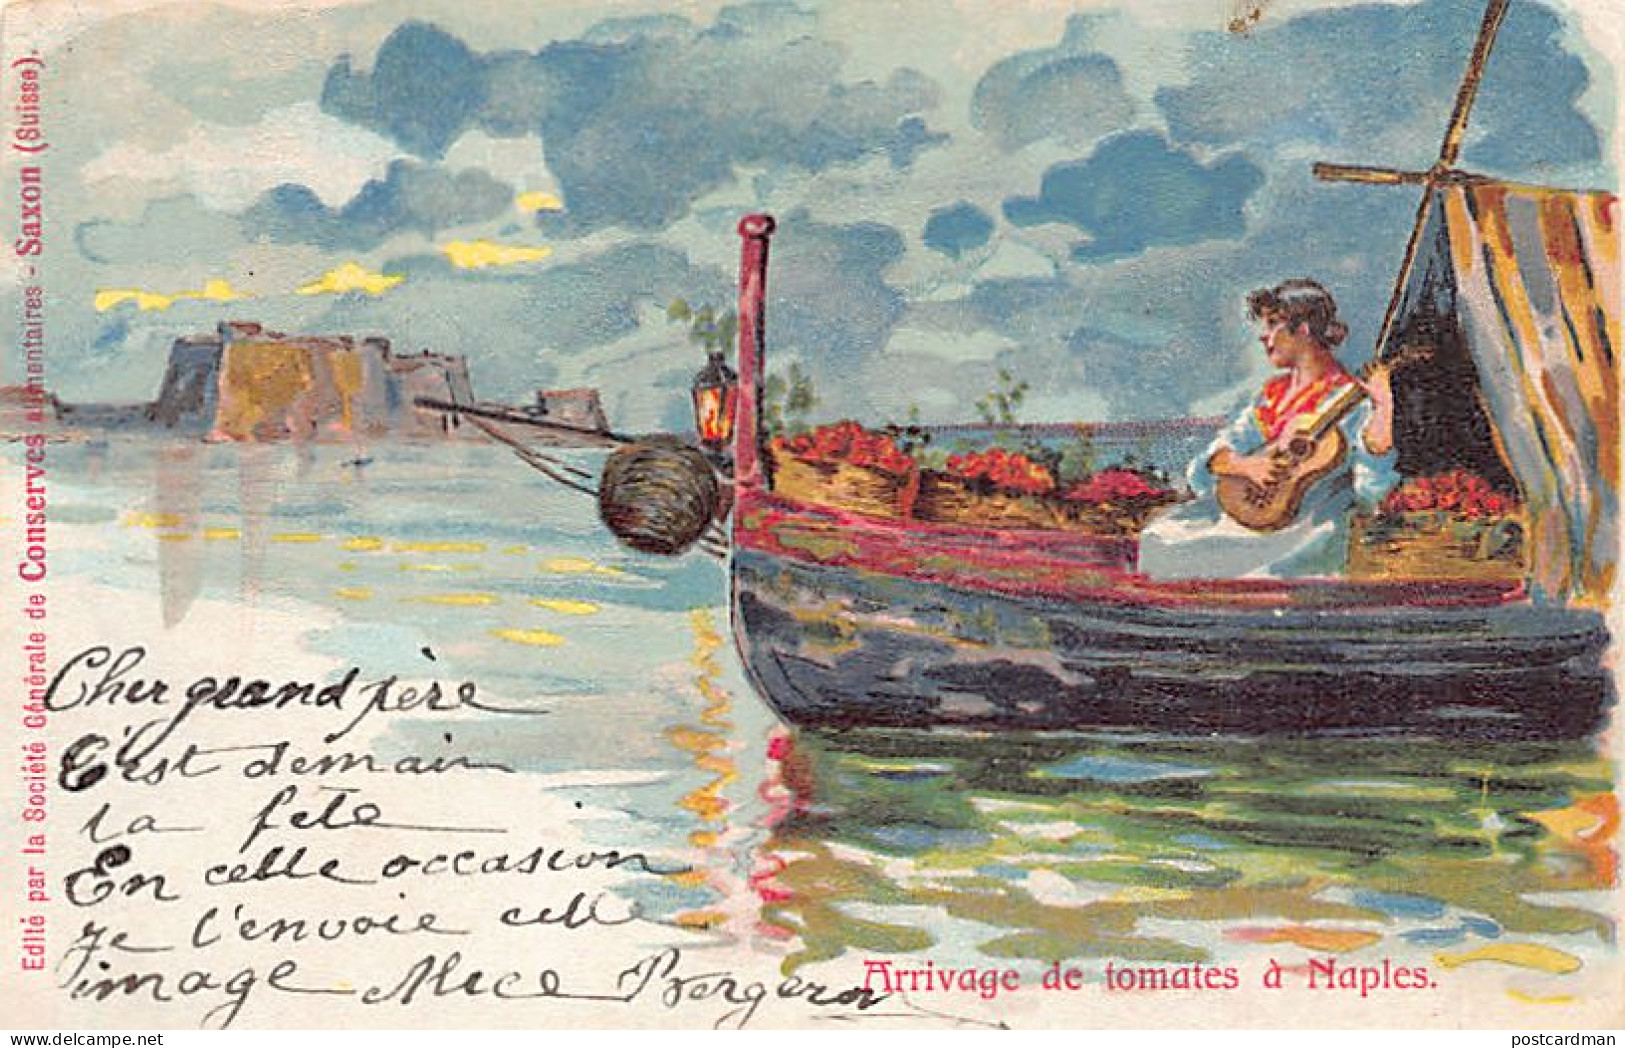 Edité par la Société Générale de Conserves alimentaires - Saxon (Suisse).
Cher grand père
C'est demain
ta fête
En cette occasion
je t'envoie cette
image Alice Bergera
Arrivage de tomates à Naples.
delcampe.net
postcardman